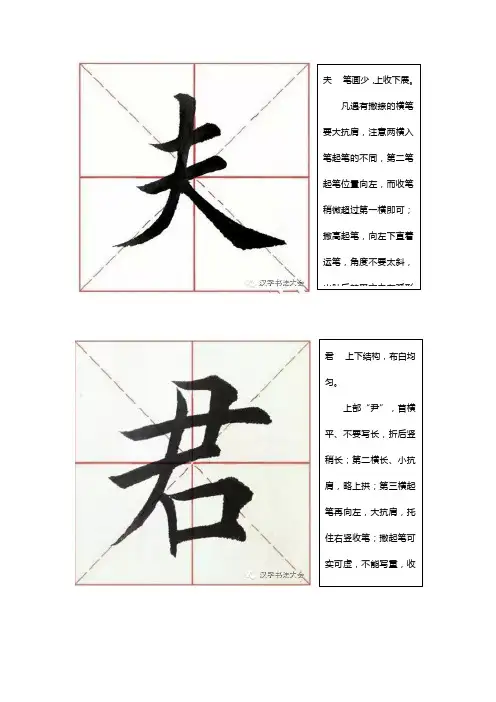 夫
汉字书法大会
夫 笔画少，上收下展。
凡遇有撇捺的横笔
要大抗肩，注意两横入
笔起笔的不同，第二笔
起笔位置向左，而收笔
稍微超过第一横即可；
撇高起笔，向左下直着
运笔，角度不要太斜，
君
汉字书法大会
君 上下结构，布白均
匀。
上部“尹”，首横
平、不要写长，折后竖
稍长；第二横长、小抗
肩，略上拱；第三横起
笔再向左，大抗肩，托
住右竖收笔；撇起笔可
实可虚，不能写重，收